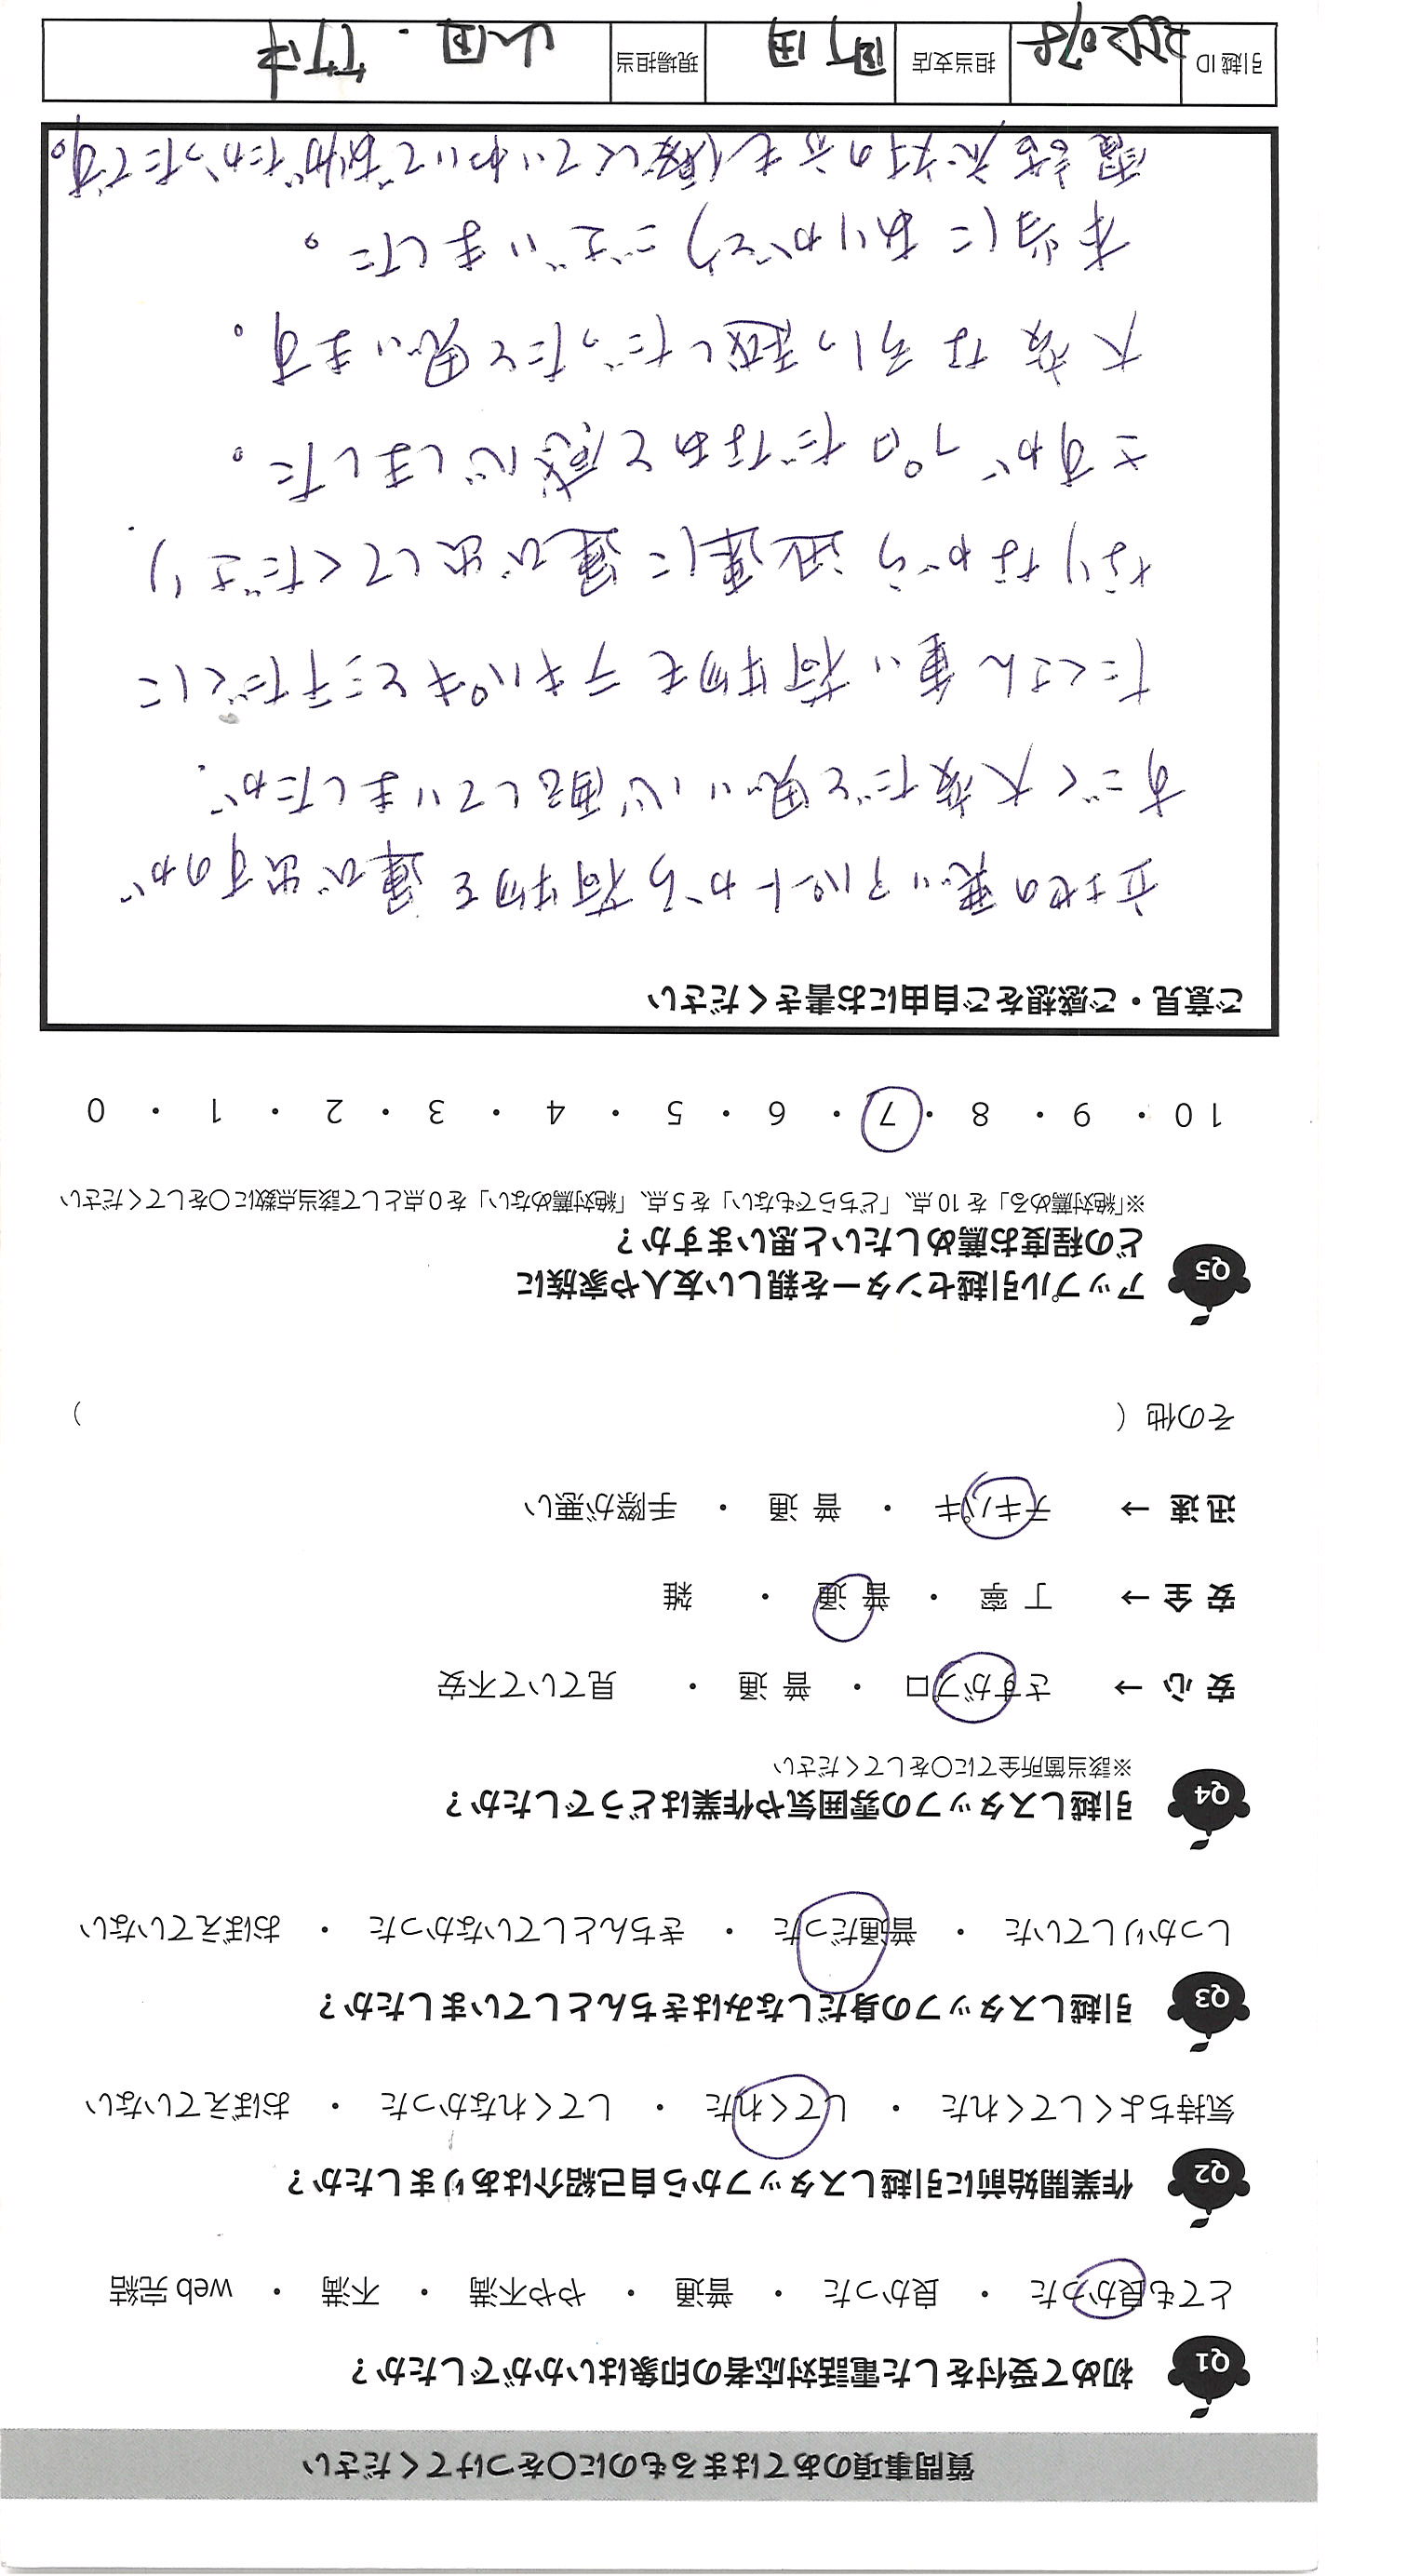 質問事項のあてはまるものに〇をつけてください
Q1 初めて受付をした電話対応者の印象はいかがでしたか？
とても良かった ・ 良かった ・ 普通 ・ やや不満 ・ 不満 ・ web 完結
Q2 作業開始前に引越しスタッフから自己紹介はありましたか？
気持ちよくしてくれた ・ してくれた ・ してくれなかった ・ おぼえていない
Q3 引越しスタッフの身だしなみはきちんとしていましたか？
しっかりしていた ・ 普通だった ・ きちんとしていなかった ・ おぼえていない
Q4 引越しスタッフの雰囲気や作業はどうでしたか？
※該当箇所全てに〇をしてください
安 心 → さすがプロ ・ 普 通 ・ 見ていて不安
安 全 → 丁 寧 ・ 普 通 ・ 雑
迅 速 → テキパキ ・ 普 通 ・ 手際が悪い
その他（ ）
Q5 アップル引越センターを親しい友人や家族に
どの程度お薦めしたいと思いますか？
※「絶対薦める」を 10 点、「どちらでもない」を 5 点、「絶対薦めない」を 0 点として該当点数に〇をしてください
10 ・ 9 ・ 8 ・ 7 ・ 6 ・ 5 ・ 4 ・ 3 ・ 2 ・ 1 ・ 0
ご意見・ご感想をご自由にお書きください
立地の悪いアパートから荷物を運び出すのが
すごく大変だと思い心配していましたが、
たくさん重い荷物もテキパキと汗だくに
なりながら迅速に運び出してくださり、
さすがプロだなあと感心しました。
大変な引っ越しだったと思います。
本当にありがとうございました。
電話応対の方も優しくていねいでありがたかったです。
引越 ID 担当支店 町田 現場担当 山田・